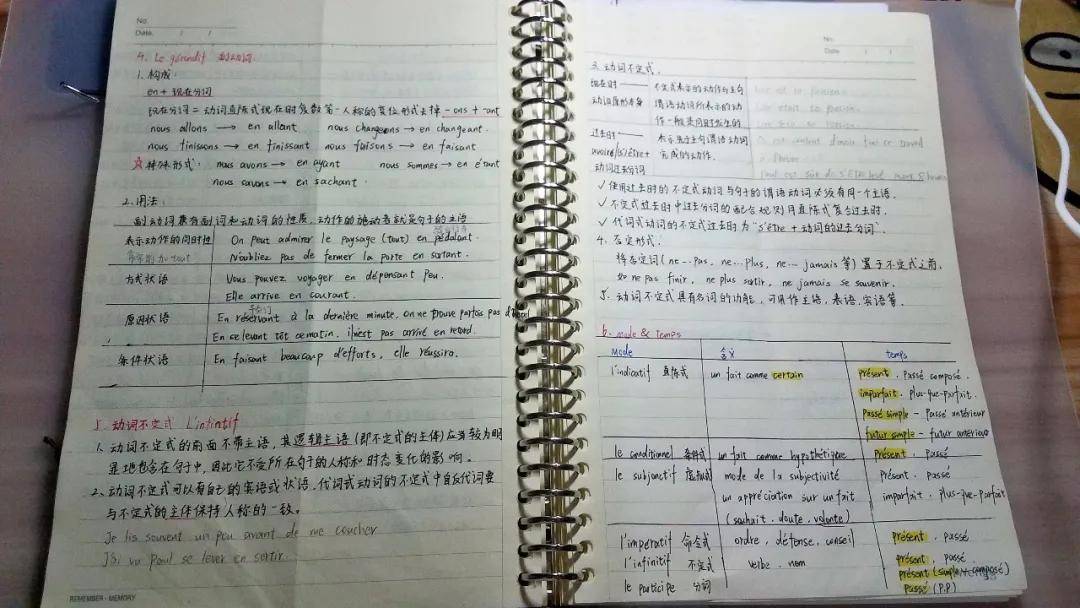 No.
Date / /
4. Le gérondif 副动词.
1. 构成:
en + 现在分词
现在分词 = 动词直陈式现在时复数第一人称的变位形式去掉 -ons + -ant
nous allons → en allant nous changeons → en changeant.
nous finissons → en finissant nous faisons → en faisant.
☆特殊形式: nous avons → en ayant nous sommes → en étant
nous savons → en sachant.
2. 用法:
副动词兼有副词和动词的性质, 动作的施动者就是句子的主语
表示动作的同时性 On peut admirer le paysage (tout) en pédalant.
N'oubliez pas de fermer la porte en sortant.
方式状语 Vous pouvez voyager en dépensant peu.
Elle arrive en courant.
原因状语 En réservant à la dernière minute, on ne trouve parfois pas d'hôtel
En se levant tôt ce matin, il n'est pas arrivé en retard.
条件状语 En faisant beaucoup d'efforts, elle réussira.
5. 动词不定式 L'infinitif
1. 动词不定式的前面不带主语, 其逻辑主语 (即不定式的主体) 应当较为明
显地包含在句子中, 因此它不受所在句子的人称和时态变化的影响.
2. 动词不定式可以有自己的宾语或状语. 代词式动词的不定式中自反代词要
与不定式的主体保持人称的一致.
Je lis souvent un peu avant de me coucher
J'ai vu Paul se lever en sortir.
REMEMBER · MEMORY
No.
Date / /
3. 动词不定式.
现在时—— 不定式表示的动作与主句
动词原形本身 谓语动词所表示的动
作一般是同时发生的
过去时—— 表示先于主句谓语动词
avoir/(s')être + 完成的动作.
动词过去分词
✓ 使用过去时的不定式动词与句子的谓语动词必须有同一个主语.
✓ 不定式过去时中过去分词的配合规则同直陈式复合过去时.
✓ 代词式动词的不定式过去时为 "s'être + 动词的过去分词".
4. 否定形式.
将否定词 (ne...pas, ne...plus, ne...jamais 等) 置于不定式之前.
如 ne pas finir, ne plus sortir, ne jamais se souvenir.
5. 动词不定式具有名词的功能, 可用作主语, 表语, 宾语等.
6. mode & temps
mode 含义 temps
l'indicatif 直陈式 un fait comme certain présent. Passé composé.
imparfait. plus-que-parfait.
Passé simple - Passé antérieur
futur simple - futur antérieur
le conditionnel 条件式 un fait comme hypothétique Présent. Passé
le subjonctif 虚拟式 mode de la subjectivité Présent. Passé
un appréciation sur un fait imparfait. plus-que-parfait
(souhait. doute. volonté)
l'impératif 命令式 ordre. défense. conseil présent. passé
l'infinitif 不定式 verbe. nom présent. passé
le participe 分词 présent (simple + composé)
Passé (P.P)